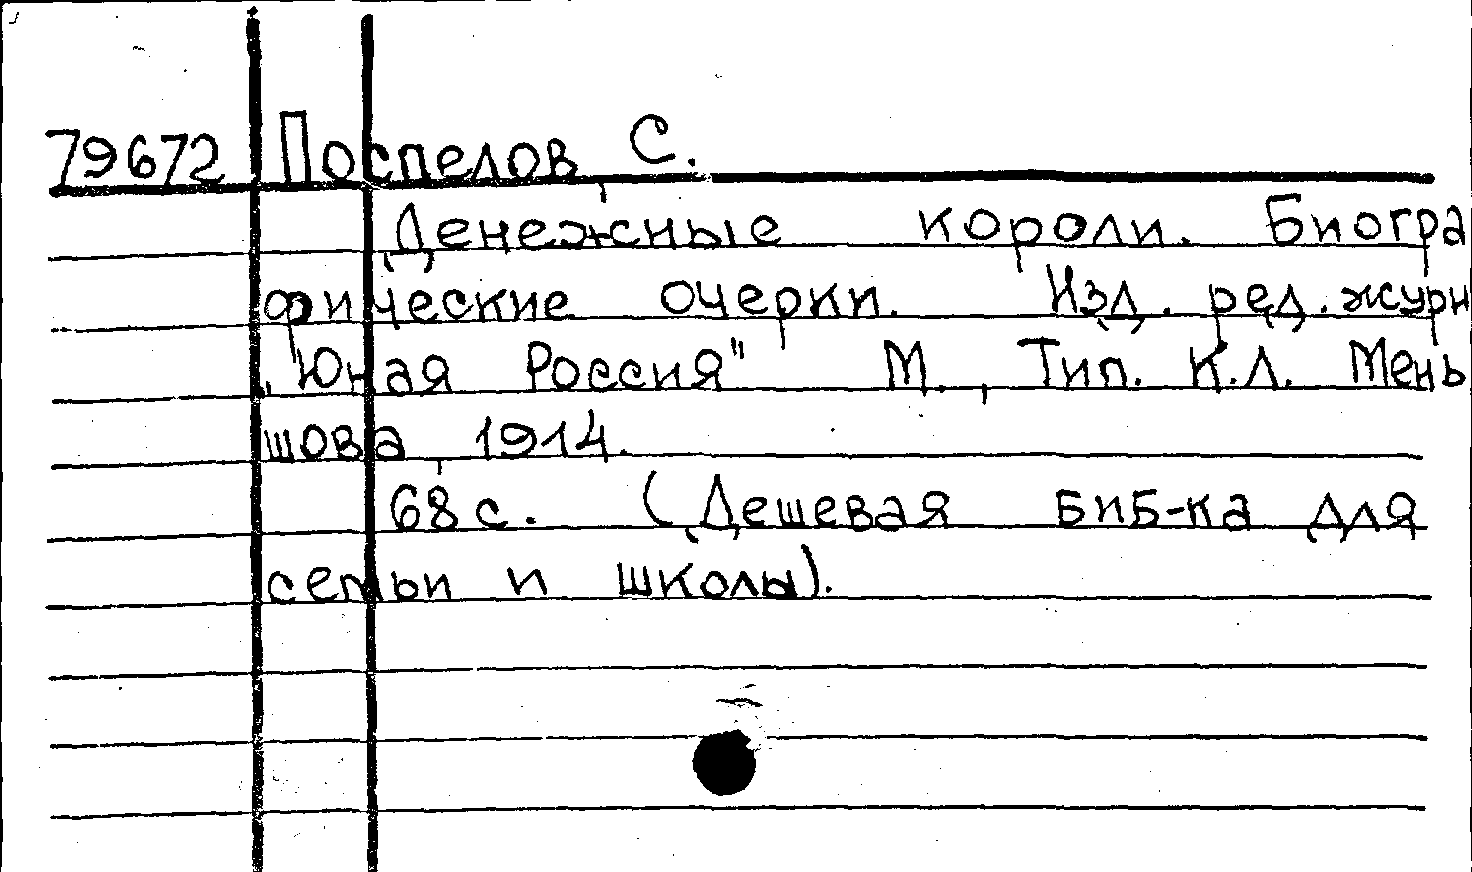 79672 Поспелов, С.
Денежные короли. Биогра
фические очерки. Изд. ред. журн
„Юная Россия" М., Тип. К.Л. Мень
шова, 1914.
68 с. (Дешевая биб-ка для
семьи и школы).